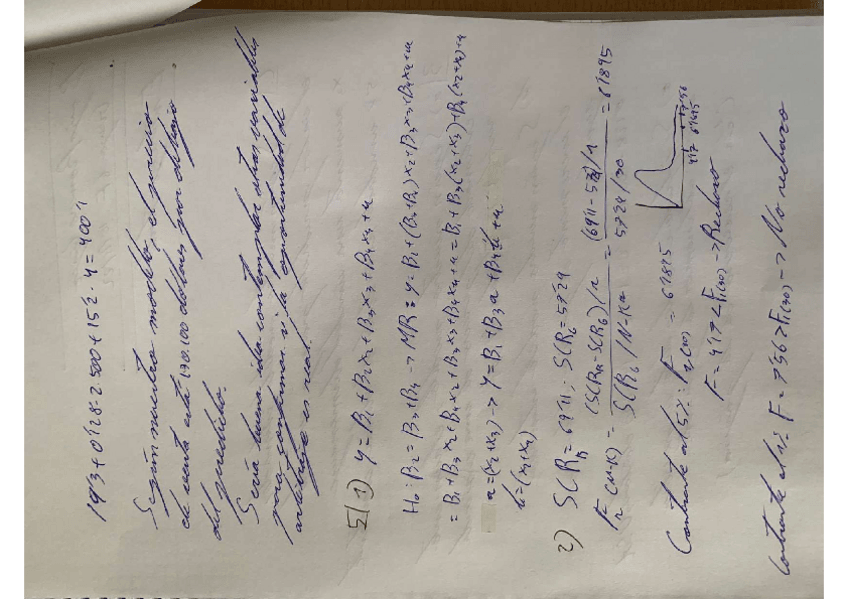 19'3+0'128·2.500+15'2·4=400'1
Según nuestro modelo, el precio
de venta está 190.100 dólares por debajo
del predicho.
Sería buena idea contemplar otras variables
para confirmar si la oportunidad de
arbitraje es real.
5| 1) y=B₁+B₂x₂+B₃x₃+B₄x₄+u
H₀: B₂=B₃+B₄ → MR: y=B₁+(B₃+B₄)x₂+B₃x₃+B₄x₄+u
=B₁+B₃x₂+B₄x₂+B₃x₃+B₄x₄+u=B₁+B₃(x₂+x₃)+B₄(x₂+x₄)+u
a=(x₂+x₃) → y=B₁+B₃a+B₄b+u
b=(x₂+x₄)
2) SCR_R=69'11; SCR_G=57'24
F_r(N-K) = (SCR_R-SCR_G)/r / SCR_G/N-K = /1 / 57'24/30 = 6'1895
Contraste al 5%: = 6'1895
F=4'17<F₁(30) → Rechazo
Contraste al 1%: F=7'56>F₁(30) → No rechazo